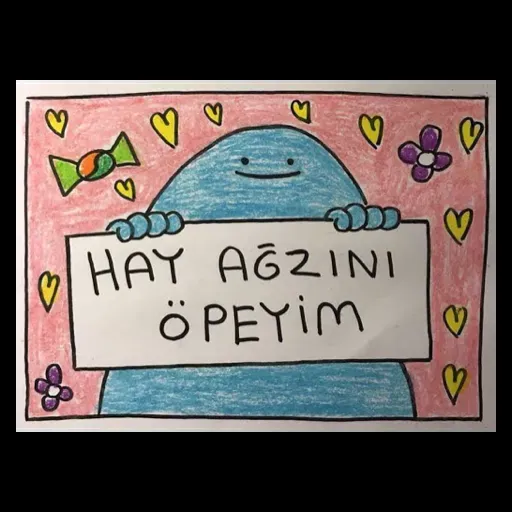 HAY AĞZINI
ÖPEYİM